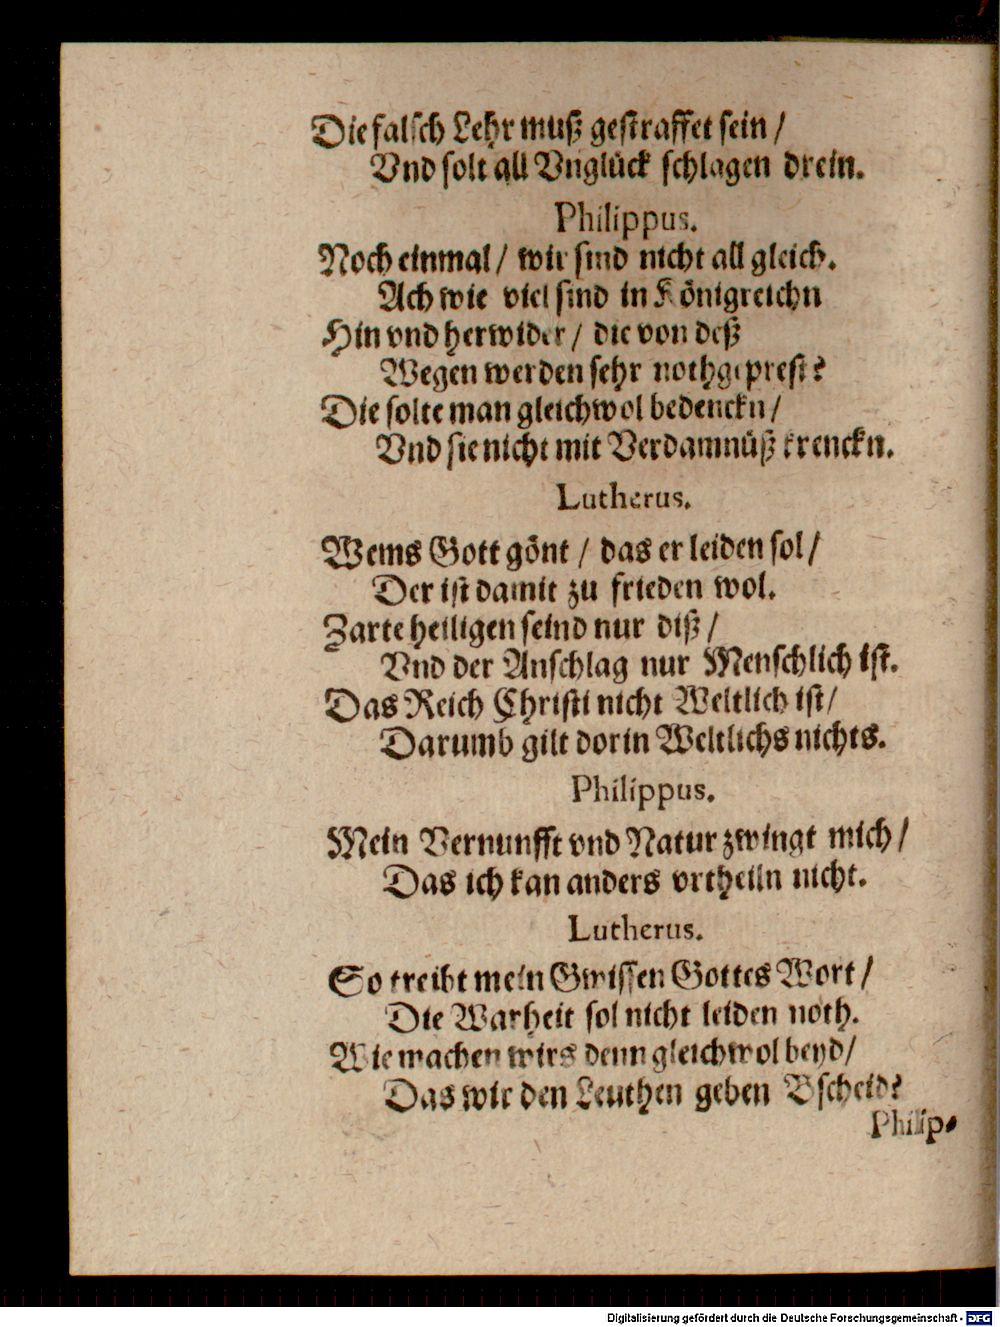 Die falsch Lehr muß gestraffet sein /
Vnd solt all Vnglück schlagen drein.
Philippus.
Noch einmal / wir sind nicht all gleich.
Ach wie viel sind in Königreichn
Hin vnd herwider / die von deß
Wegen werden sehr nothgeprest?
Die solte man gleichwol bedenckn /
Vnd sie nicht mit Verdamnüß krenckn.
Lutherus.
Wems Gott gönt / das er leiden sol /
Der ist damit zu frieden wol.
Zarte heiligen seind nur diß /
Vnd der Anschlag nur Menschlich ist.
Das Reich Christi nicht Weltlich ist /
Darumb gilt dorin Weltlichs nichts.
Philippus.
Mein Vernunfft vnd Natur zwingt mich /
Das ich kan anders vrtheiln nicht.
Lutherus.
So treibt mein Gwissen Gottes Wort /
Die Warheit sol nicht leiden noth.
Wie machen wirs denn gleichwol beyd /
Das wir den Leuthen geben Bscheid?
Philip-
Digitalisierung gefördert durch die Deutsche Forschungsgemeinschaft - DFG